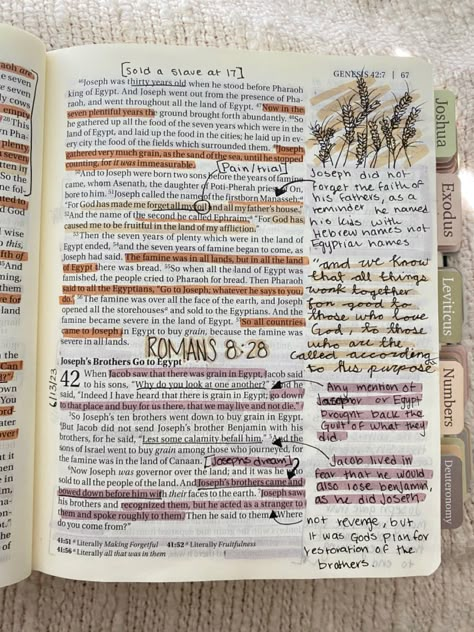 [sold a slave at 17]
GENESIS 42:7 | 67
⁴⁶Joseph was thirty years old when he stood before Pharaoh
king of Egypt. And Joseph went out from the presence of Pha-
raoh, and went throughout all the land of Egypt. ⁴⁷Now in the
seven plentiful years the ground brought forth abundantly. ⁴⁸So
he gathered up all the food of the seven years which were in the
land of Egypt, and laid up the food in the cities; he laid up in ev-
ery city the food of the fields which surrounded them. ⁴⁹Joseph
gathered very much grain, as the sand of the sea, until he stopped
counting, for it was immeasurable.
[Pain/trial]
⁵⁰And to Joseph were born two sons before the years of famine
came, whom Asenath, the daughter of Poti-Pherah priest of On,
bore to him. ⁵¹Joseph called the name of the firstborn Manasseh:
"For God has made me forget all my toil and all my father's house."
⁵²And the name of the second he called Ephraim: "For God has
caused me to be fruitful in the land of my affliction."
⁵³Then the seven years of plenty which were in the land of
Egypt ended, ⁵⁴and the seven years of famine began to come, as
Joseph had said. The famine was in all lands, but in all the land
of Egypt there was bread. ⁵⁵So when all the land of Egypt was
famished, the people cried to Pharaoh for bread. Then Pharaoh
said to all the Egyptians, "Go to Joseph; whatever he says to you,
do." ⁵⁶The famine was over all the face of the earth, and Joseph
opened all the storehouses and sold to the Egyptians. And the
famine became severe in the land of Egypt. ⁵⁷So all countries
came to Joseph in Egypt to buy grain, because the famine was
severe in all lands.
ROMANS 8:28
Joseph's Brothers Go to Egypt
6/13/23
42 When Jacob saw that there was grain in Egypt, Jacob said
to his sons, "Why do you look at one another?" ²And he
said, "Indeed I have heard that there is grain in Egypt; go down
to that place and buy for us there, that we may live and not die."
³So Joseph's ten brothers went down to buy grain in Egypt.
⁴But Jacob did not send Joseph's brother Benjamin with his
brothers, for he said, "Lest some calamity befall him." ⁵And the
sons of Israel went to buy grain among those who journeyed, for
the famine was in the land of Canaan.
[Josephs dream]
⁶Now Joseph was governor over the land; and it was he who
sold to all the people of the land. And Joseph's brothers came and
bowed down before him with their faces to the earth. ⁷Joseph saw
his brothers and recognized them, but he acted as a stranger to
them and spoke roughly to them. Then he said to them, "Where
do you come from?"
41:51 ª Literally Making Forgetful 41:52 ª Literally Fruitfulness
41:56 ª Literally all that was in them
Joseph did not
forget the faith of
his fathers, as a
reminder he named
his kids with
Hebrew names not
Egyptian names
"and we know
that all things
work together
for good to
those who love
God, to those
who are the
called according
to his purpose"
Any mention of
or Egypt
brought back the
Guilt of what they
did.
Jacob lived in
fear that he would
also lose Benjamin,
as he did Joseph
not revenge, but
it was Gods plan for
restoration of the
brothers.
Joshua
Exodus
Leviticus
Numbers
Deuteronomy